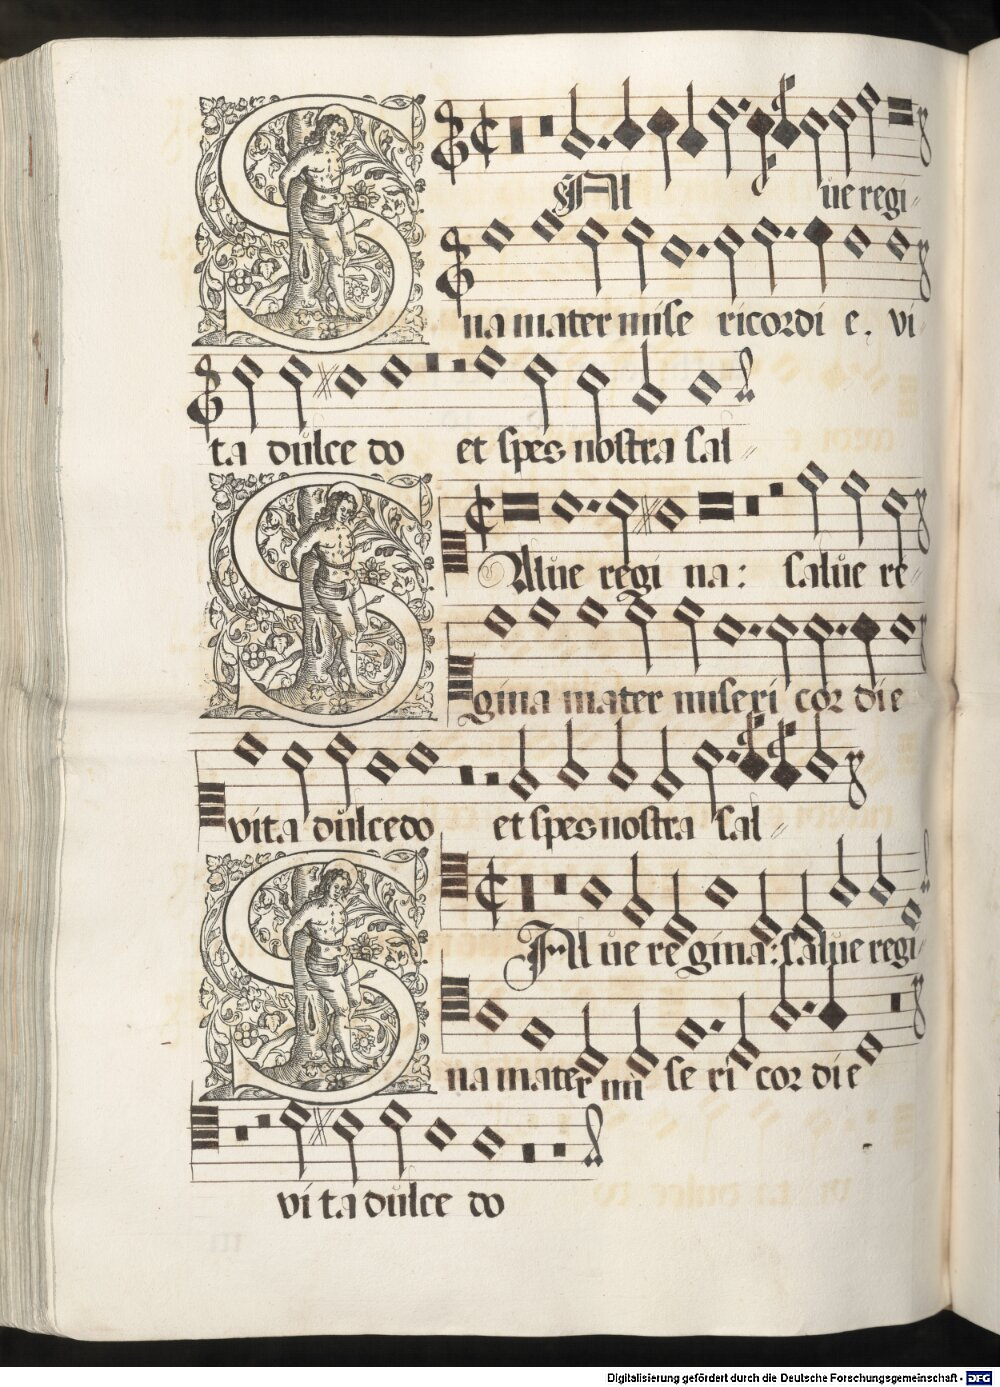 SAl ue regi
na mater mise ricordi e. vi
ta dulce do et spes nostra sal
SAlue regi na: salue re
gina mater miseri cor die
vita dulcedo et spes nostra sal
SAl ue re gina: salue regi
na mater mi se ri cor die
vi ta dulce do
Digitalisierung gefördert durch die Deutsche Forschungsgemeinschaft - DFG